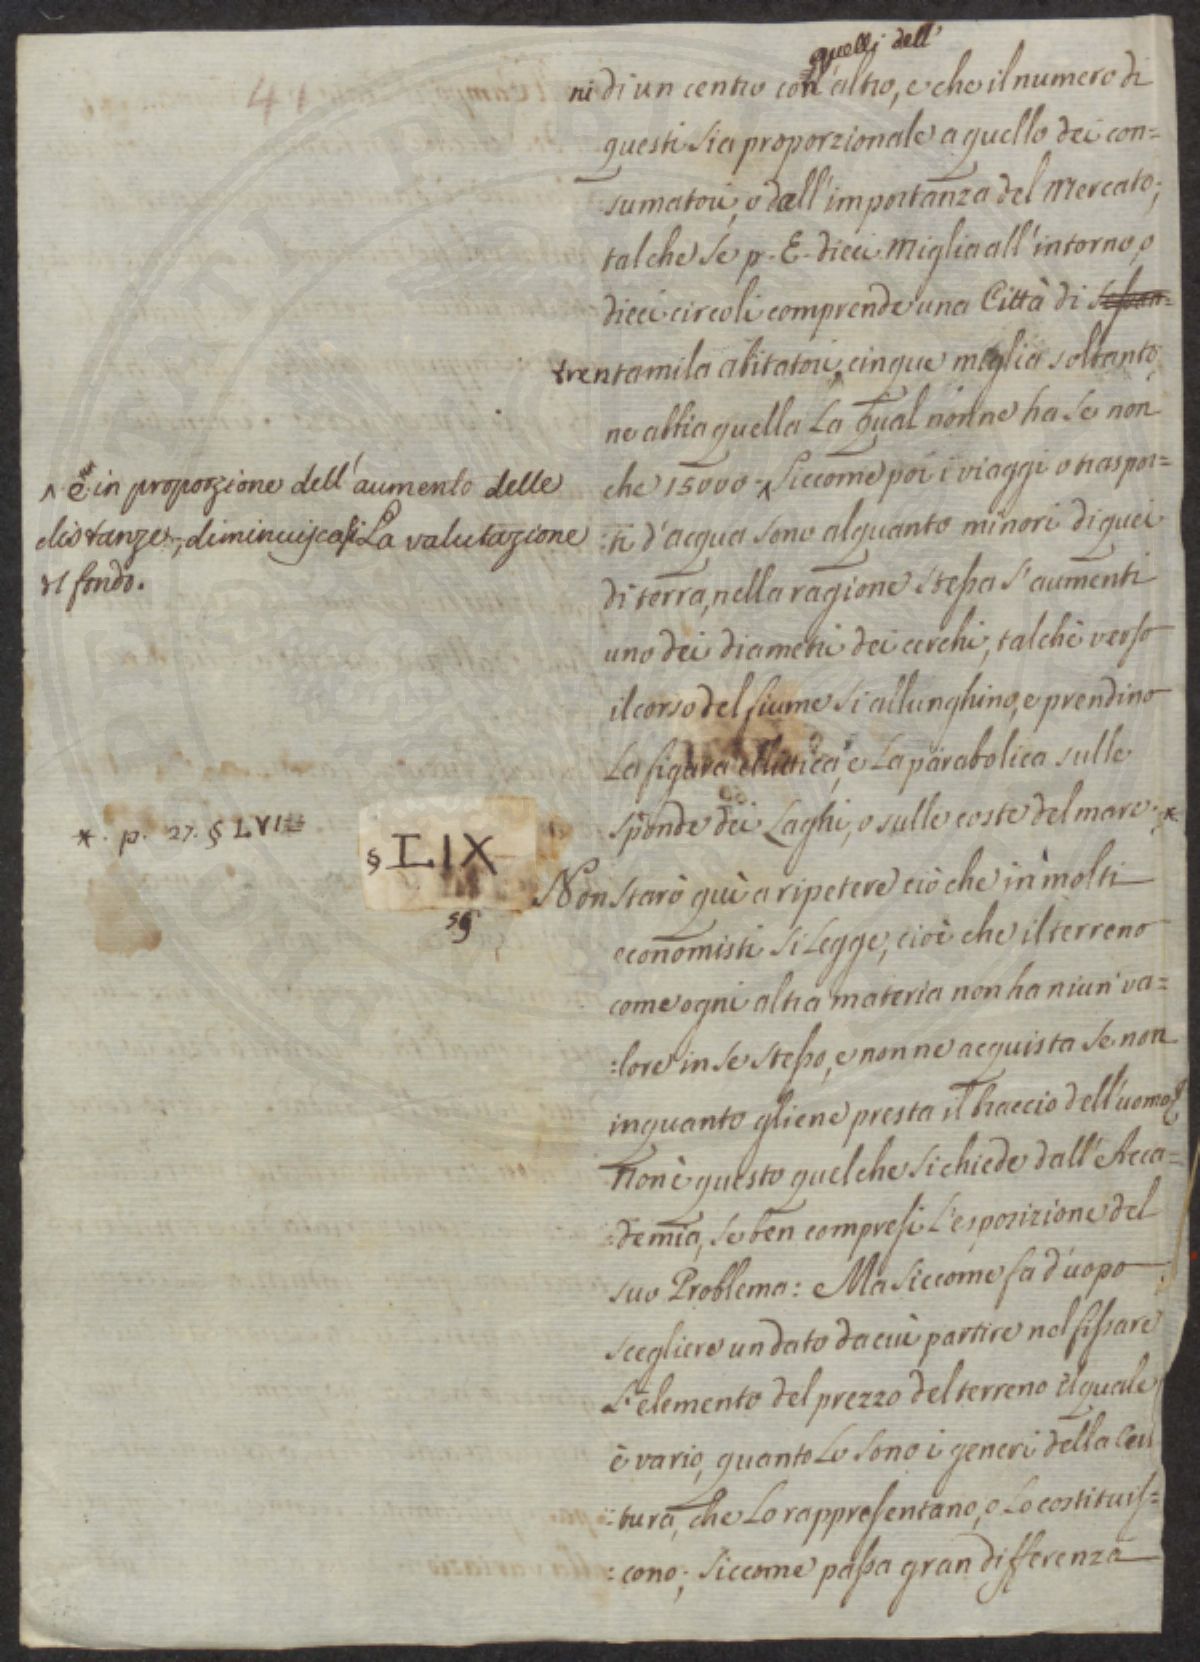 quelli dell'
ni di un centro con altro, e che il numero di
questi sia proporzionale a quello dei con=
sumatori, o dall'importanza del Mercato;
talchè se p. E. dieci Miglia all'intorno, o
dieci circoli comprende una Città di
trentamila abitatori, cinque miglia soltanto
ne abbia quella la qual non ne ha se non
che 15000. ^ Siccome poi i viaggi o traspor=
:ti d'acqua sono alquanto minori di quei
di terra, nella ragione stessa s'aumenti
uno dei diametri dei cerchi, talchè verso
il corso del fiume si allunghino, e prendino
la figura ellittica, e la parabolica sulle
sponde dei Laghi, o sulle coste del mare. *
^ e in proporzione dell'aumento delle
distanze, diminuiscasi la valutazione
del fondo.
* . p. 27. § LVI
§ LIX
59
Non starò quì a ripetere ciò che in molti
economisti si legge, cioè che il terreno
come ogni altra materia non ha niun va=
:lore in se stesso, e non ne acquista se non
inquanto gliene presta il braccio dell'uomo
Non è questo quel che si chiede dall'Acca=
:demia, se ben compresi l'esposizione del
suo Problema: Ma siccome fa d'uopo
scegliere un dato da cui partire nel fissare
l'elemento del prezzo del terreno il quale
è vario, quanto lo sono i generi della Cul
:tura, che lo rappresentano, o lo costituis=
:cono; siccome passa gran differenza